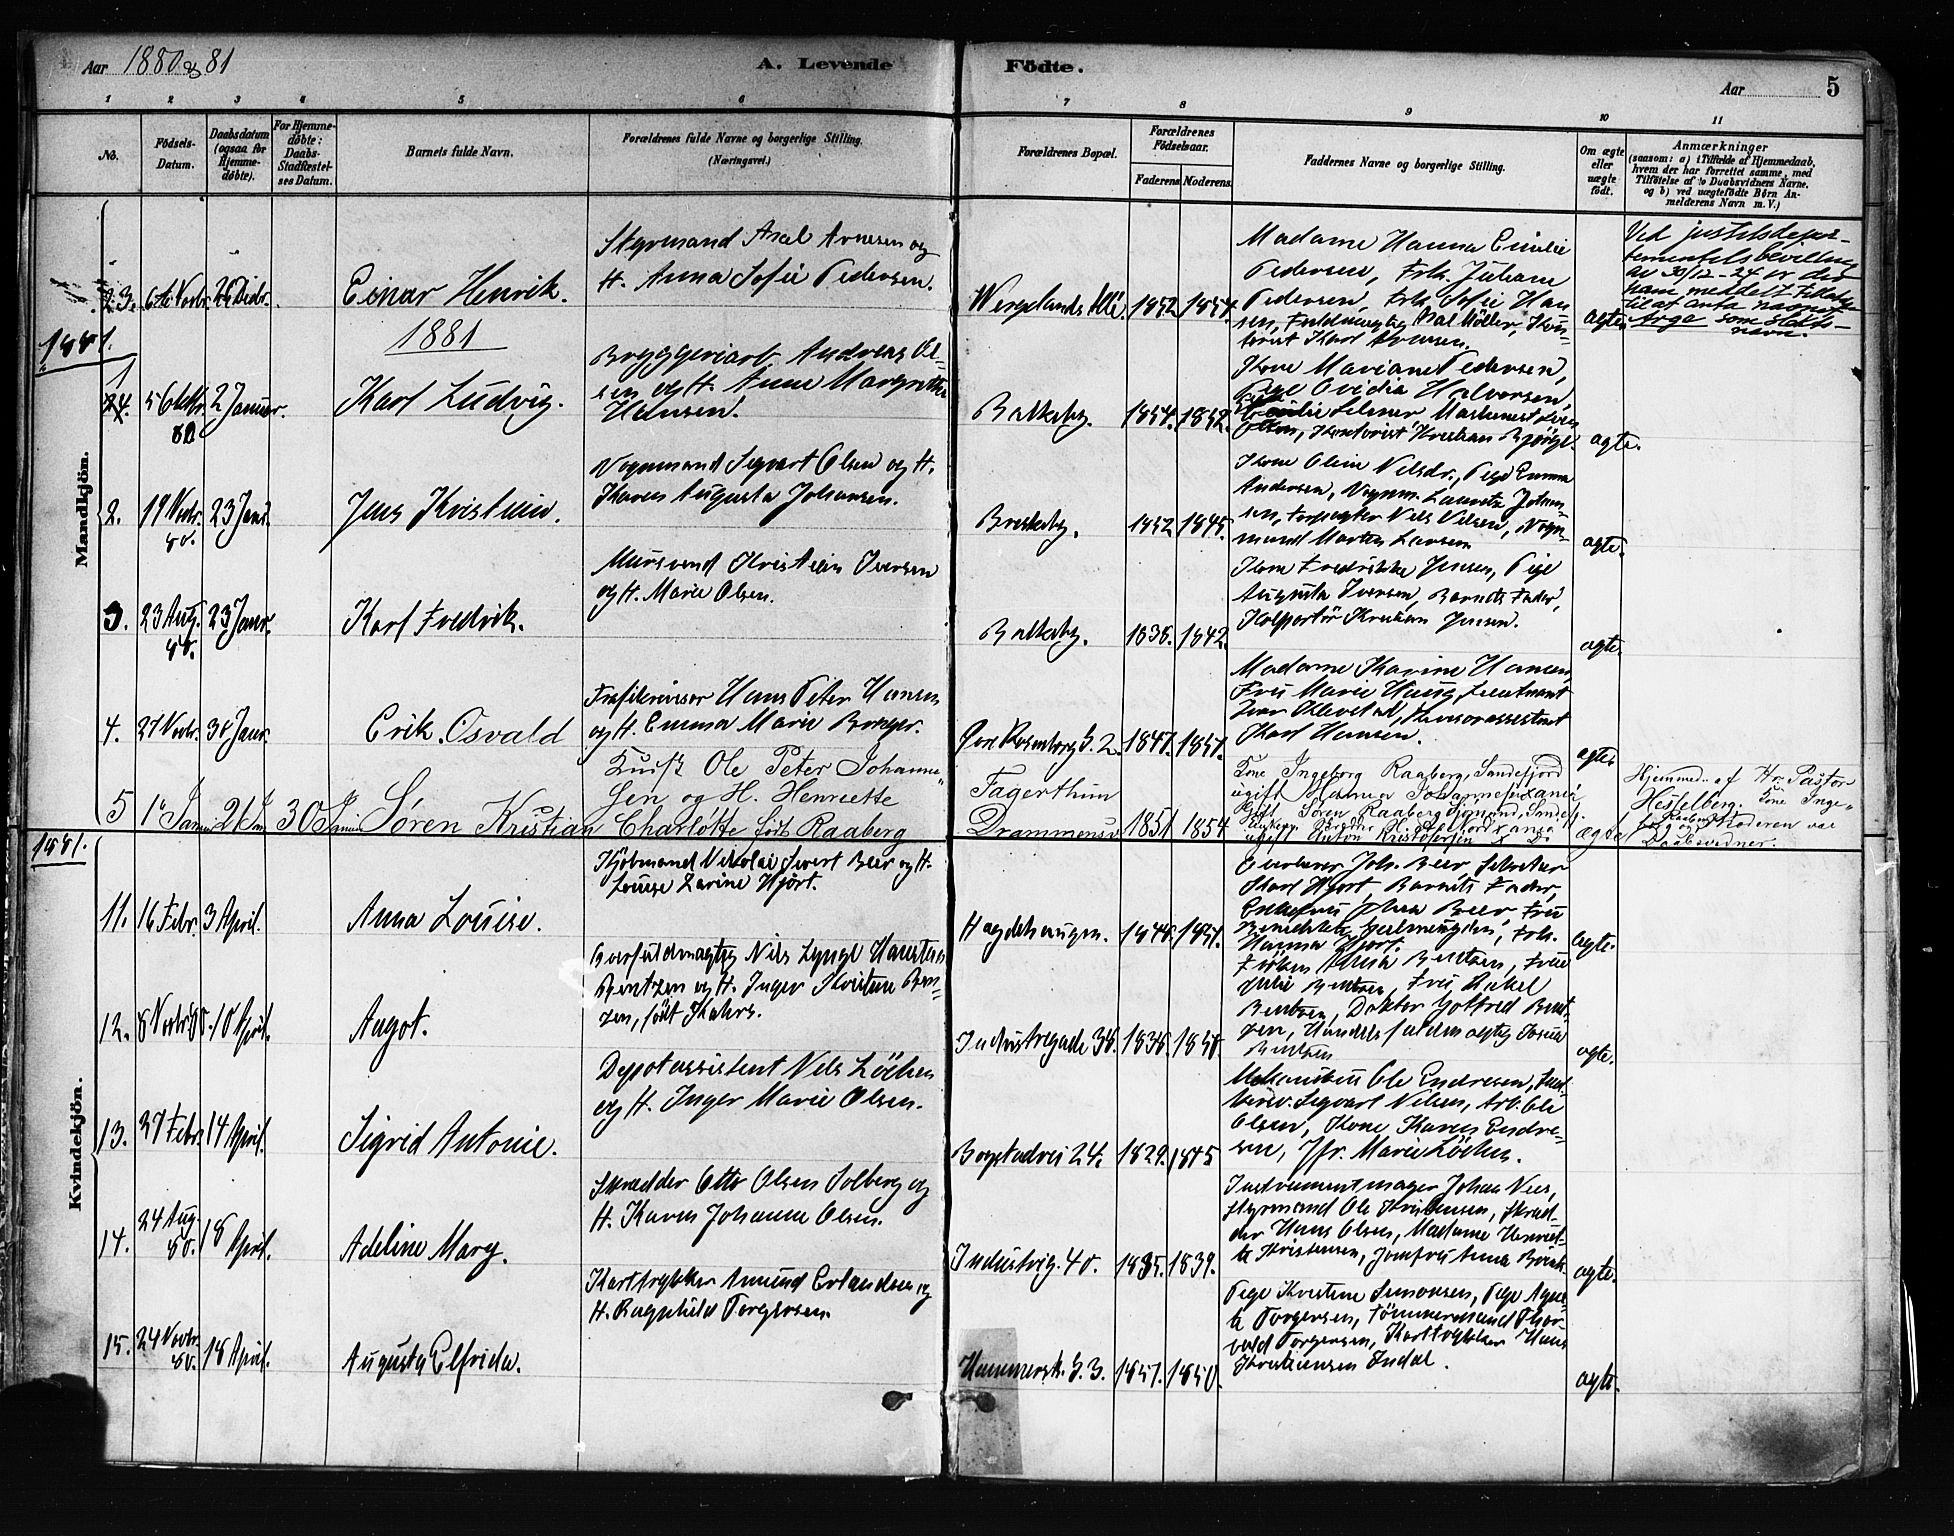 Aar 1880 & 81
A. Levende
Födte.
Aar
5
1 2 3 4 5 6 7 8 9 10 11
No.
Födsels-Datum.
Daabsdatum (ogsaa for Hjemme-döbte).
For Hjemme-döbte: Daabs-Stadfæstel-ses Datum.
Barnets fulde Navn.
Forældrenes fulde Navne og borgerlige Stilling. (Næringsvei.)
Forældrenes Bopæl.
Forældrenes Födselsaar.
Faderens. Moderens.
Faddernes Navne og borgerlige Stilling.
Om ægte eller uægte födt.
Anmærkninger
(saasom: a) i Tilfælde af Hjemmedaab,
hvem der har forrettet samme, med
Tilföielse af to Daabsvidners Navne.
og b) ved uægtefödte Börn An-
melderens Navn m. V.)
Mandkjön.
23. 6te Novbr. 26 Decbr.
Einar Henrik.
Styrmand Axel Arnesen og
H. Anna Sofie Pedersen.
Wergelands Allé. 1852 1854.
Madame Hanna Emilie
Pedersen, Frk. Juliane
Pedersen, Frk. Sofie Han-
sen, Fuldmægtig Axel Möller, Kon-
torist Karl Arnesen.
ægte
Ved justisdepar-
tementets bevilling
av 30/12-24 er der
ham meddelt tillatelse
til at anta navnet
Arge som slekts-
navn.
1881.
1881
1 24. 5 Oktbr. 80 2 Januar.
Karl Ludvig.
Bryggeriarb. Andreas Ol-
sen og H. Anne Margrethe
Hansen.
Balkeby. 1854. 1852.
Kone Mariane Pedersen,
Pige Ovidia Halvorsen,
Kontorist Kristian
ægte.
2. 19 Novbr. 80. 23 Janr.
Jens Kristian.
Vognmand Sigvart Olsen og H.
Karen Augusta Johansen.
Briskeby. 1852 1845.
Kone Oline Nilsdr., Pige Emma
Andersen, Vognm. Lauritz Johan-
sen, Forpagter Nils Nilsen, Vogn-
mand Martin Larsen
ægte.
3. 23 Aug. 80. 23 Janr.
Karl Fredrik.
Mursvend Kristian Iversen
og H. Marie Olsen.
Balkeby. 1836. 1842.
Kone Fredrikke Jensen, Pige
Augusta Iversen, Barnets Fader,
Kolportör Kristian Jensen.
ægte.
4. 27 Novbr. 30 Janr.
Erik Osvald
Trafikrevisor Hans Peter Hansen
og H. Emma Marie
G. 2. 1847. 1857.
Madame Karine Hansen,
Fru Marie Haug, Lieutnant
Iver Klevstad, Revisorassistent
Karl Hansen.
ægte
5 1 Januar 21 Jan 30 Januar
Søren Kristian
Ole Peter Johanne-
sen og H. Henriette
Charlotte født Raaberg
Fagerthun
Drammensv 1851 1854
Kone Ingeborg Raaberg, Sandefjord
ugift Hanna Johannesen
Søren Raaberg Sjømand, Sandefj.
ugift Anton Kristofersen
ægte
Hjemmed. af Hr. Pastor
Hesselberg. Kone Inge-
borg Raaberg og Moderen var
Daabsvidner.
1881.
Kvindekjön.
11. 16 Febr. 3 April.
Anna Louise.
Kjöbmand Nikolai Sivert Beer og H.
Louise Zarine Hjort.
Hægdehaugen. 1848. 1857.
Joh. Beer, Sekretær
Karl Hjort, Barnets Fader,
Enkefru Beer, Fru
Hanna Hjort.
ægte.
12. 8 Novbr. 80. 10 April.
Aagot.
Nils Lynge
Bentzen og H. Inger Kristine Ben-
zen, född Kahrs.
Industrigade 36. 1836. 1850.
Fröken Anna Bentzen, Frue
Julie Bentzen, Fru Rakel
Bentzen, Doktor Gotfred Bent-
zen, Handelsfuldmægtig
Bentzen
ægte.
13. 27 Febr. 14 April.
Sigrid Antonie.
Depotassistent Nils Löchen
og H. Inger Marie Olsen.
Bogstadvei 24. 1829. 1845
Ole Endresen,
Sigvart Nilsen, Arb. Ole
Olsen, Kone Karen Endre-
sen, Jfr. Marie Löchen.
14. 24 Aug. 80. 18 April.
Adeline Mary.
Skrædder Otto Olsen Solberg og
H. Karen Johanne Olsen.
Industrig. 40. 1835. 1839.
Instrumentmager Johan
Styrmand Ole Kristensen, Skræd-
der Hans Olsen, Madame Henriet-
te Kristensen, Jomfru Anna
ægte.
15. 24 Novbr. 80. 18 April.
Augusta Elfrida.
Karttrykker Amund Erlandsen og
H. Ragnhild Torgersen.
Hammersb. G. 3. 1857. 1850.
Pige Kristine Simonsen, Pige Agne-
te Torgersen, Tömmermand Thor-
vald Torgersen, Karttrykker Hans
Kristiansen Indal.
ægte.